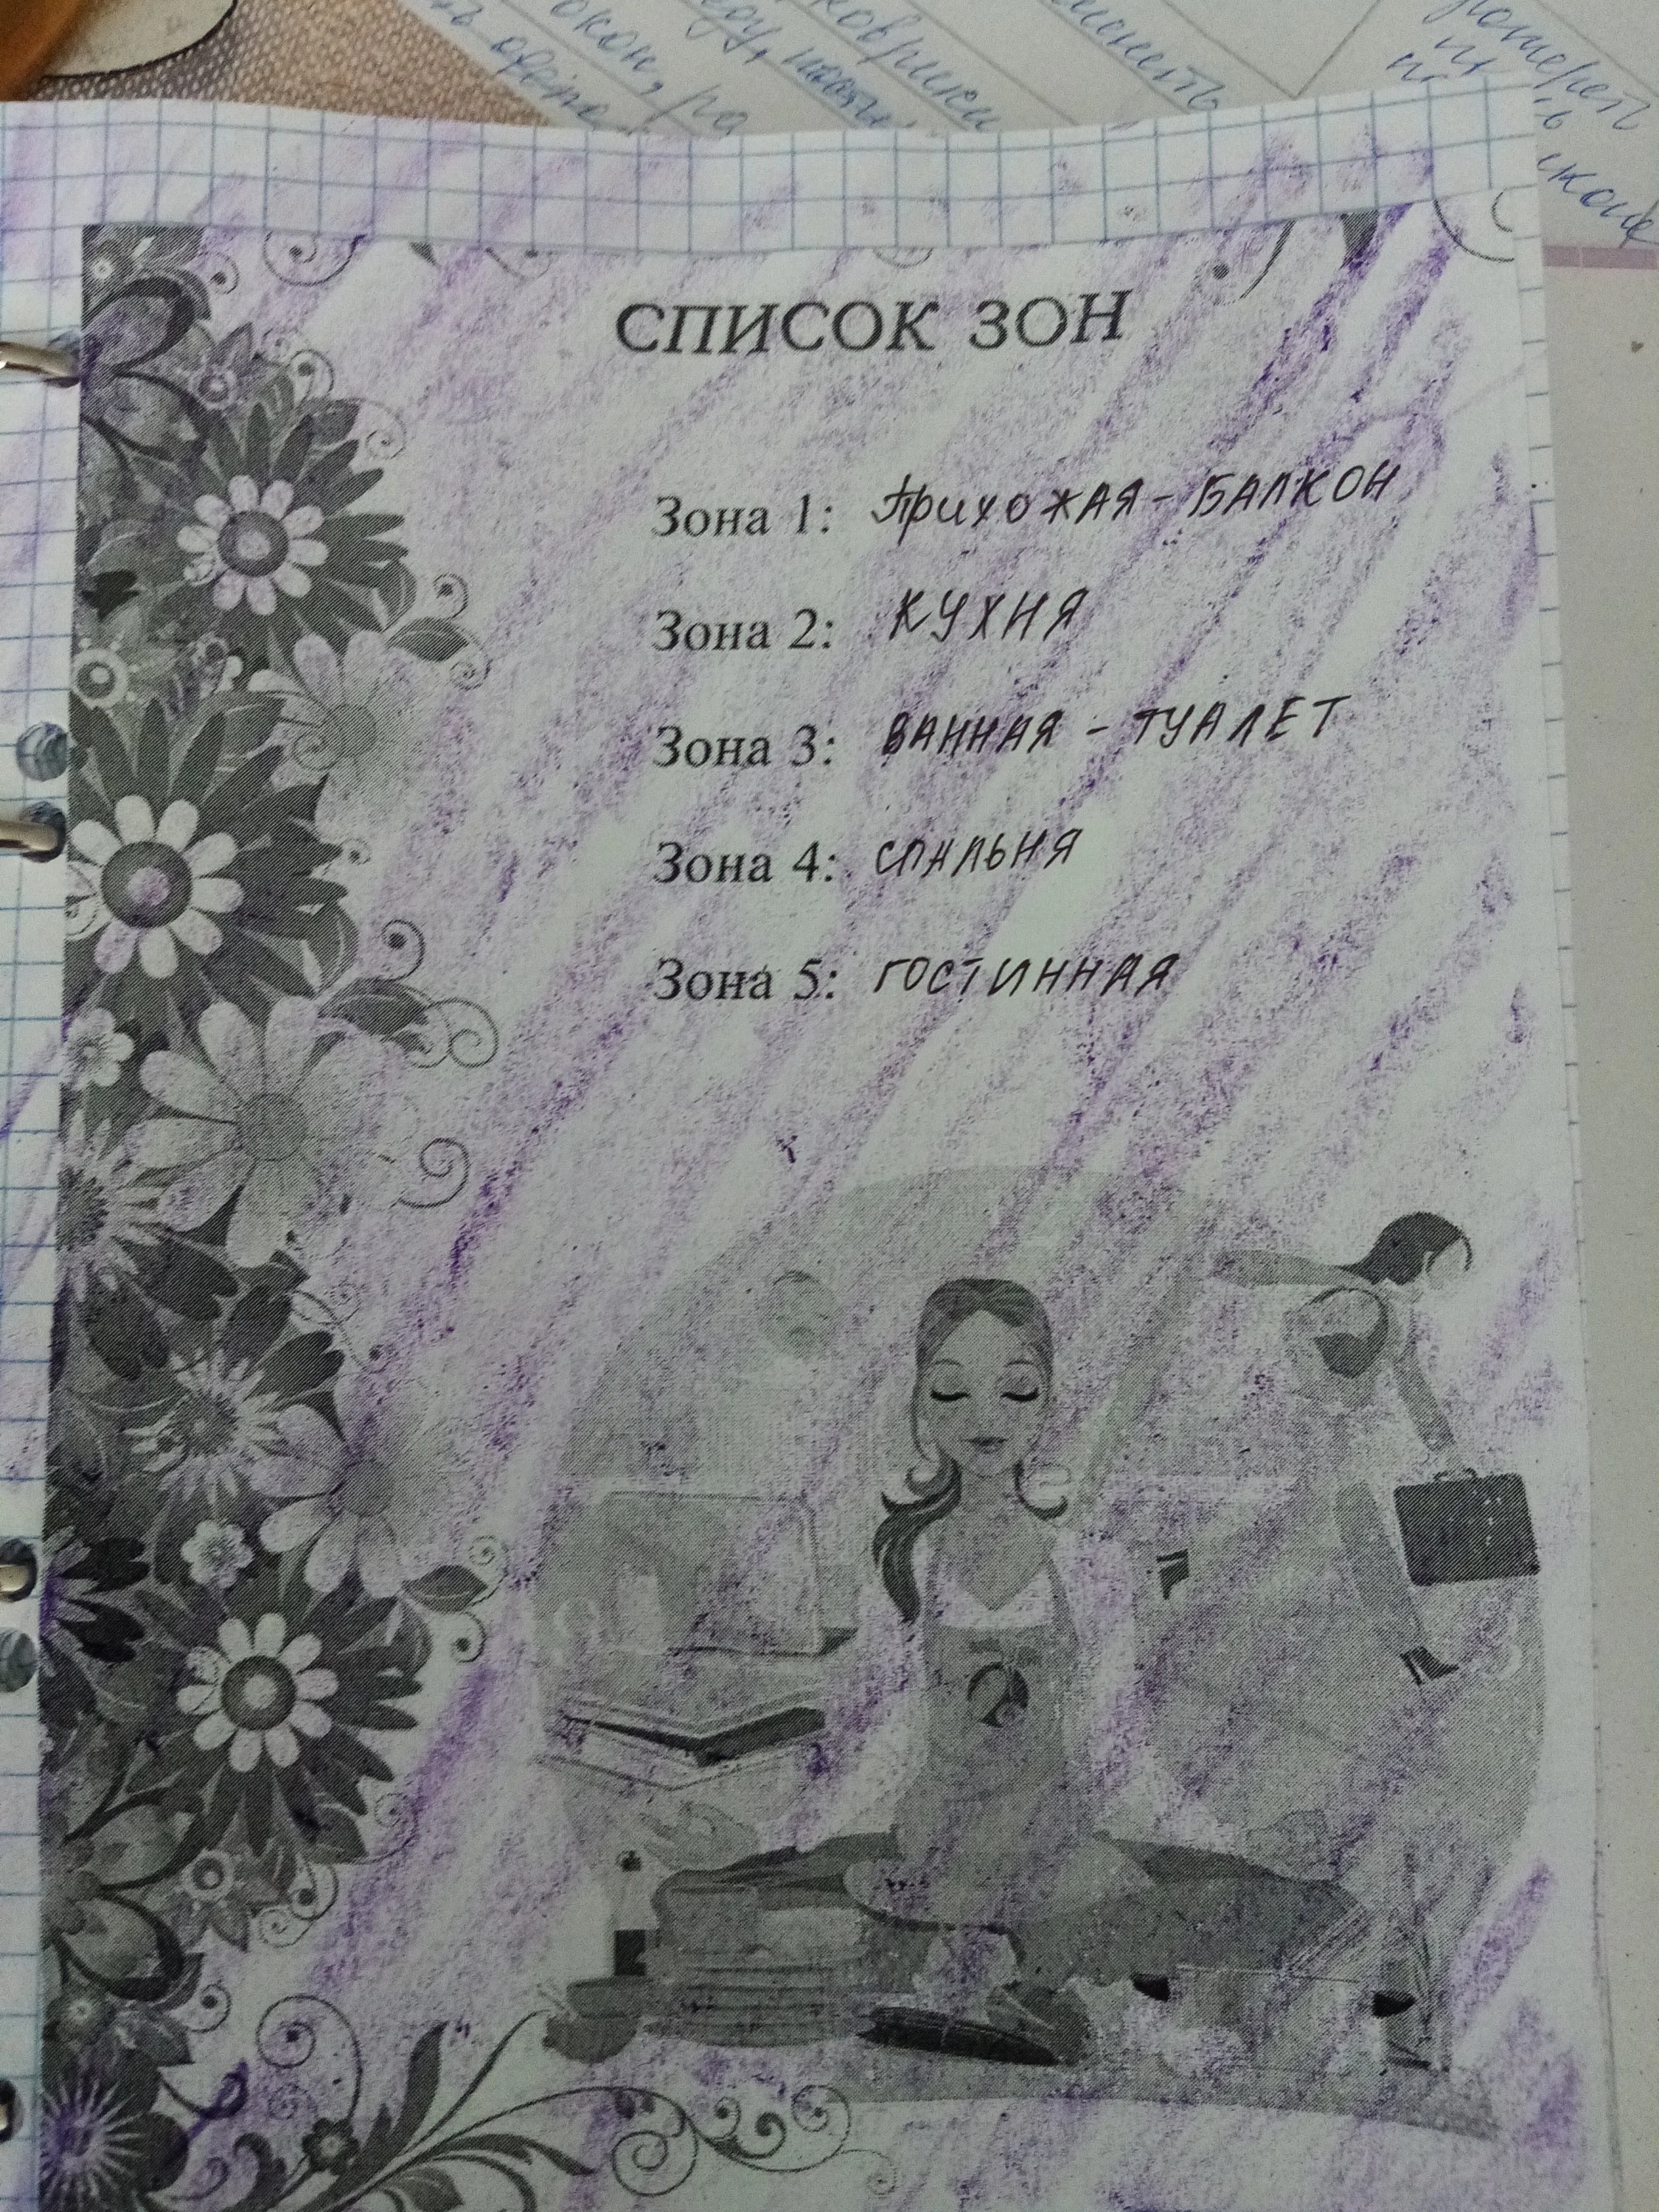 окон, ра
коврики
СПИСОК ЗОН
Зона 1: Прихожая - БАЛКОН
Зона 2: КУХНЯ
Зона 3: ВАННАЯ - ТУАЛЕТ
Зона 4: СПАЛЬНЯ
Зона 5: ГОСТИННАЯ